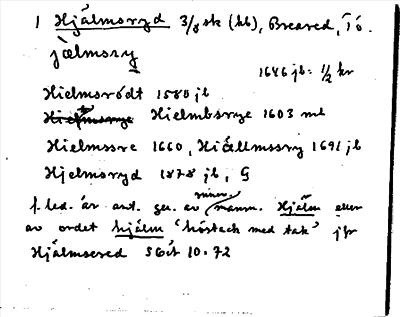 1 Hjälmsryd 3/8 sk (kb), Breared, Tö.
jœ̀lmsry
1646 jb: 1/2 kr
Hielmsrödt 1580 jb
Hielmbsrye 1603 ml
Hielmssre 1660, Hiällmssry 1691 jb
Hjelmsryd 1878 jb, G
f. led. är ant. gen. av mansn. Hjälm eller
av ordet hjälm 'höstack med tak' jfr
Hjälmsered SGÖ 10:72